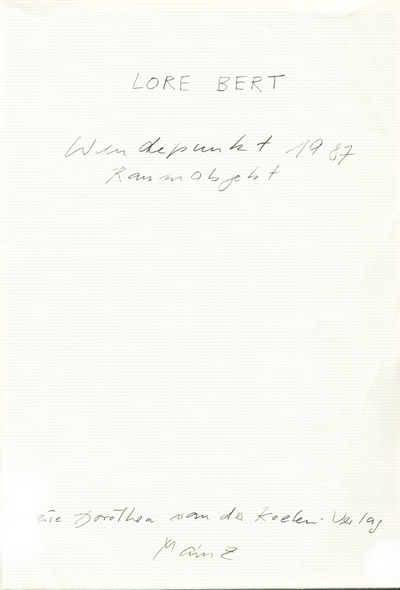 LORE BERT
Wendepunkt 1987
Raumobjekt
Dorothea van der Koelen · Verlag
Mainz